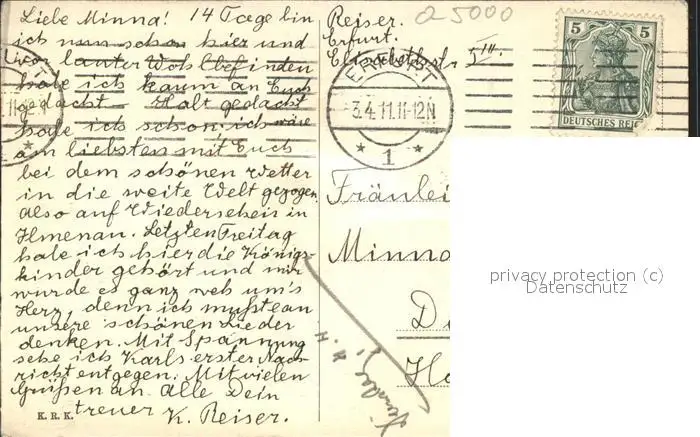 Liebe Minna! 14 Tage bin
ich nun schon hier und
vor lauter Wohlbefinden
habe ich kaum an Euch
gedacht – Halt gedacht
habe ich schon, ich wäre
am liebsten mit Euch
bei dem schönen Wetter
in die weite Welt gezogen
also auf Wiedersehen in
Ilmenau. Letzten Freitag
habe ich hier die Königs-
kinder gehört und mir
wurde es ganz weh um's
Herz, denn ich mußte an
unsere schönen Lieder
denken. Mit Spannung
sehe ich Karls erster Nach-
richt entgegen. Mit vielen
Grüßen an alle Dein
treuer K. Reiser.
K. R. K.
Q 5000
Reiser.
Erfurt.
5 III.
ERFURT
3.4.11.11-12N
* 1 *
5 5
DEUTSCHES REICH
Fräulei
Minna
privacy protection (c)
Datenschutz